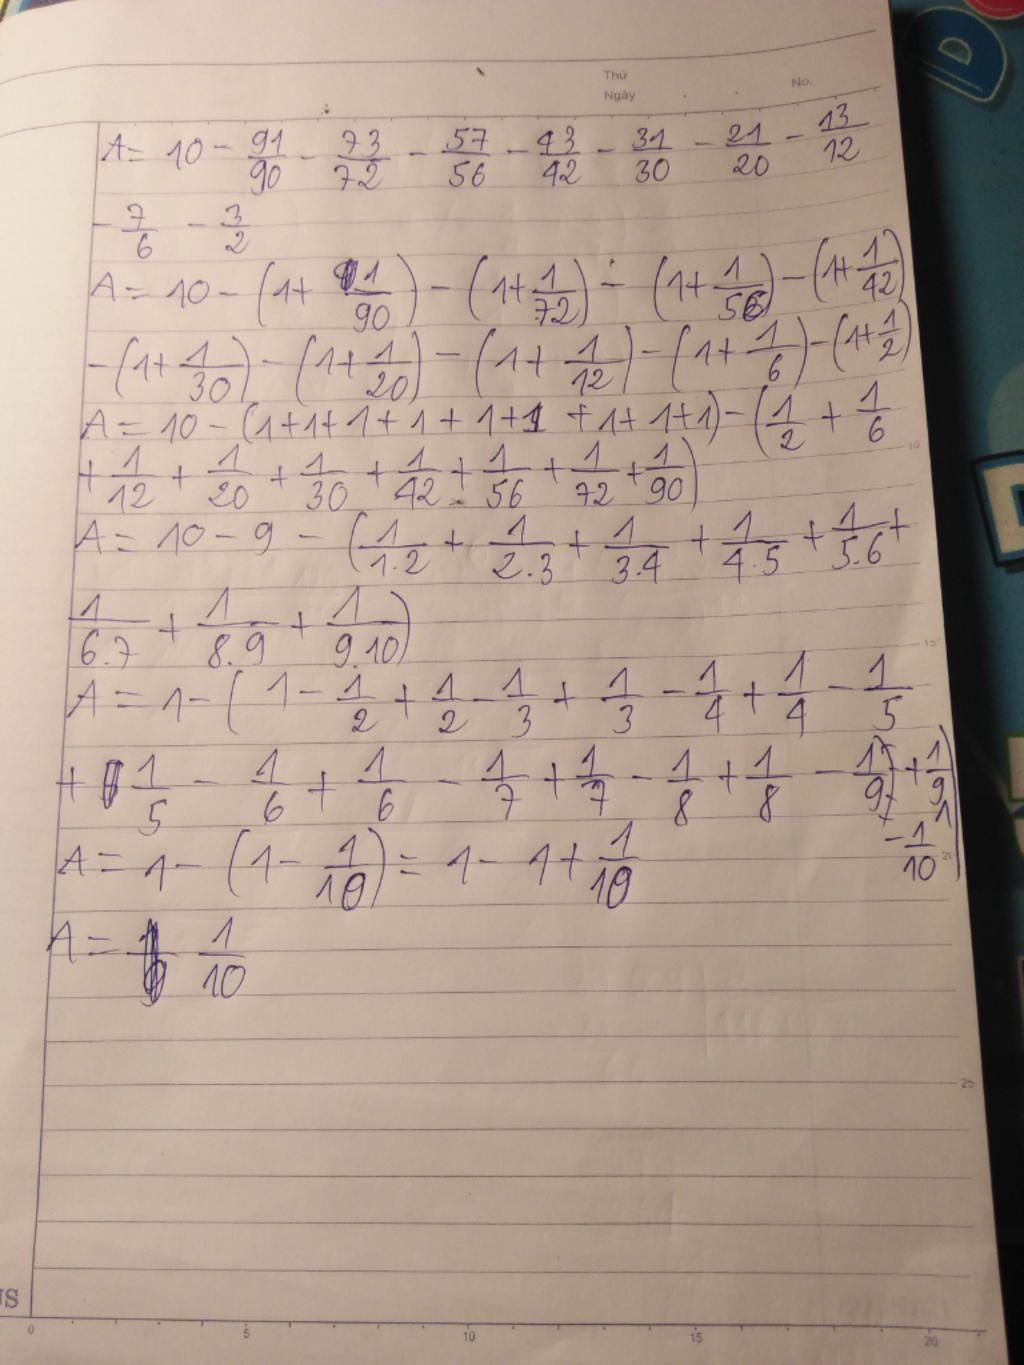 Thứ
Ngày
No.
A = 10 - 91/90 - 73/72 - 57/56 - 43/42 - 31/30 - 21/20 - 13/12
- 7/6 - 3/2
A = 10 - (1 + 1/90) - (1 + 1/72) - (1 + 1/56) - (1 + 1/42)
- (1 + 1/30) - (1 + 1/20) - (1 + 1/12) - (1 + 1/6) - (1 + 1/2)
A = 10 - (1+1+1+1+1+1+1+1+1) - (1/2 + 1/6
+ 1/12 + 1/20 + 1/30 + 1/42 + 1/56 + 1/72 + 1/90)
10
A = 10 - 9 - (1/1.2 + 1/2.3 + 1/3.4 + 1/4.5 + 1/5.6 +
1/6.7 + 1/8.9 + 1/9.10)
15
A = 1 - (1 - 1/2 + 1/2 - 1/3 + 1/3 - 1/4 + 1/4 - 1/5
+ 1/5 - 1/6 + 1/6 - 1/7 + 1/7 - 1/8 + 1/8 - 1/9 + 1/9
- 1/10)
A = 1 - (1 - 1/10) = 1 - 1 + 1/10
A = 1/10
25
US
0 5 10 15 20